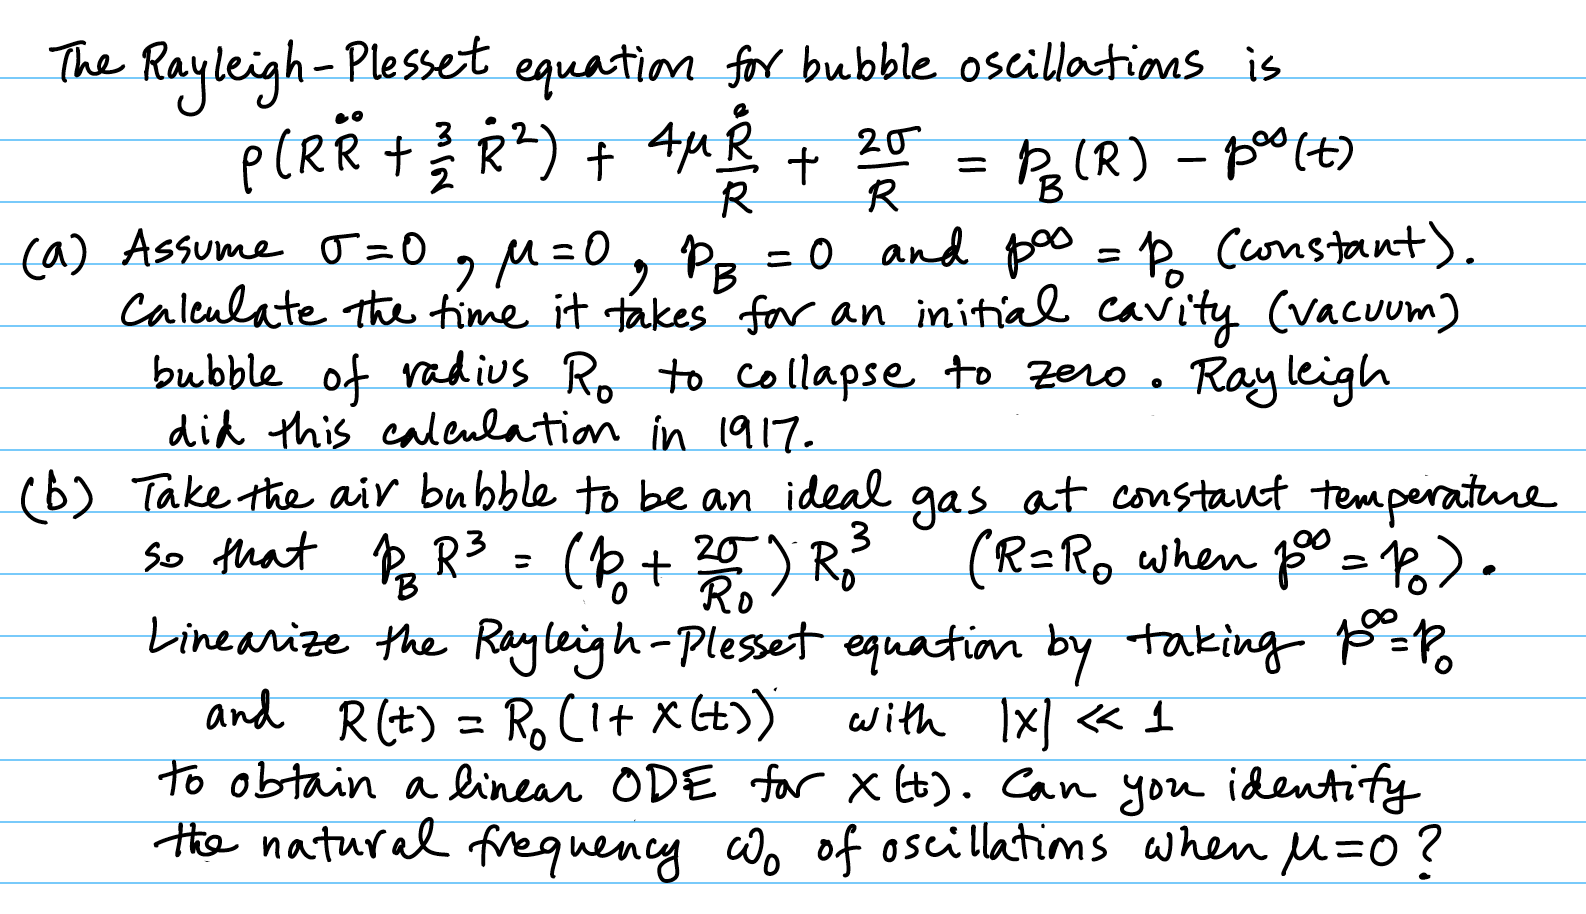 The Rayleigh-Plesset equation for bubble oscillations is
ρ(RR̈ + 3/2 Ṙ²) + 4μ Ṙ/R + 2σ/R = p_B(R) − p^∞(t)
(a) Assume σ=0, μ=0, p_B = 0 and p^∞ = p₀ (constant).
Calculate the time it takes for an initial cavity (vacuum)
bubble of radius R₀ to collapse to zero. Rayleigh
did this calculation in 1917.
(b) Take the air bubble to be an ideal gas at constant temperature
so that p_B R³ = (p₀ + 2σ/R₀) R₀³ (R=R₀ when p^∞ = p₀).
Linearize the Rayleigh-Plesset equation by taking p^∞=p₀
and R(t) = R₀(1+x(t)) with |x| ≪ 1
to obtain a linear ODE for x(t). Can you identify
the natural frequency ω₀ of oscillations when μ=0?